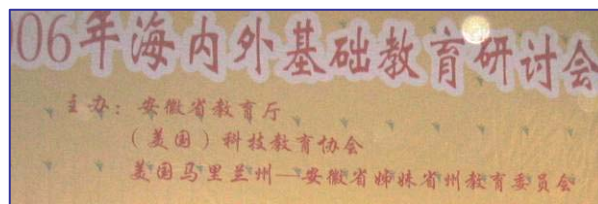 06年海内外基础教育研讨会
主办：安徽省教育厅
（美国）科技教育协会
美国马里兰州—安徽省姊妹省州教育委员会